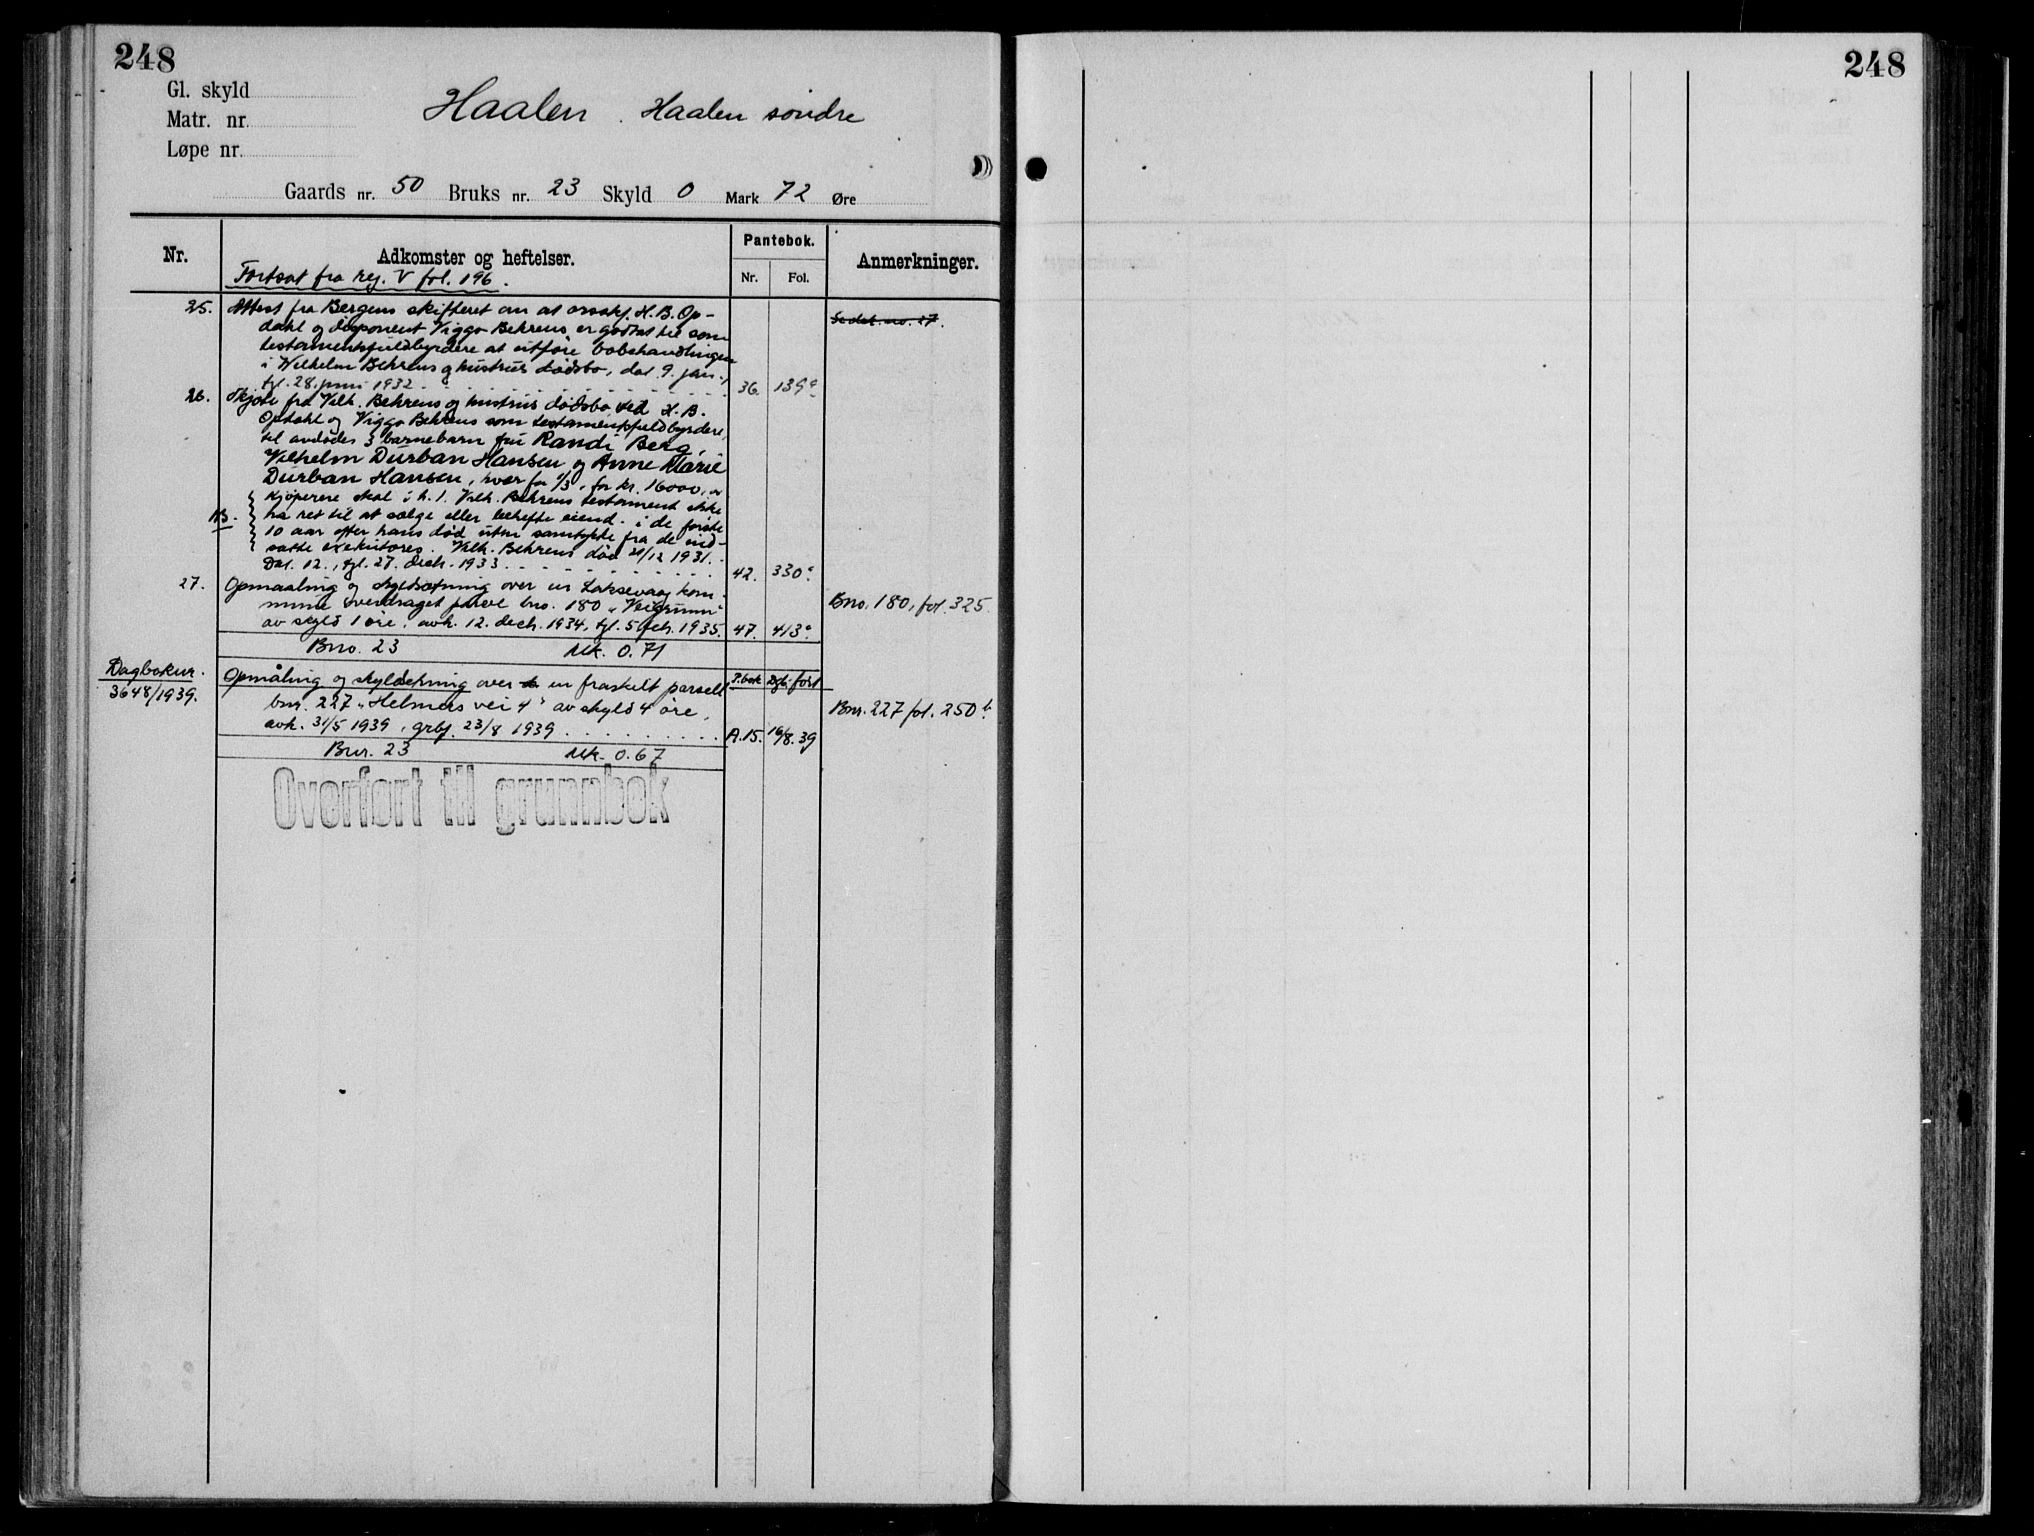 248
248
Gl. skyld
Matr. nr.
Løpe nr.
Haalen. Haalen søndre
Gaards nr. 50 Bruks nr. 23 Skyld 0 Mark 72 Øre
Nr.
Adkomster og heftelser.
Pantebok.
Nr. Fol.
Anmerkninger.
Fortsat fra reg. V fol. 196.
25. Attest fra Bergens skifteret om at orsakf. H. B. Op-
dahl og disponent Viggo Behrens er godtat til som
testamentsfuldbyrdere at utføre bobehandlingen
i Wilhelm Behrens og hustrus dødsbo, dat. 9. jan.,
tgl. 28. juni 1932 36. 139a
Se dok. no. 27.
26. Skjøte fra Vilh. Behrens og hustrus dødsbo ved H. B.
Opdahl og Viggo Behrens som testamentsfuldbyrdere,
til avdødes 3 barnebarn fru Randi Berg,
Vilhelm Durban Hansen og Anne Marie
Durban Hansen, hver for 1/3, for kr. 16000,
NB. Kjøperne skal i h. t. Vilh. Behrens testament ikke
ha ret til at sælge eller behefte eiend. i de første
10 aar efter hans død uten samtykke fra de ind-
satte exekutores. Vilh. Behrens død 21/12 1931.
Dat. 12., tgl. 27. decb. 1933 42. 330a
27. Opmaaling og skyldsætning over en Laksevaag kom-
mune overdraget parcel bno. 180 "Veigrunn"
av skyld 1 øre, avh. 12. decb. 1934, tgl. 5 feb. 1935. 47. 413a
Bno. 180, fol. 325.
Bno. 23 Mk. 0.71
Dagboknr.
3648/1939.
Opmåling og skyldsetning over en fraskilt parsell
bnr. 227 "Helmers vei 4" av skyld 4 øre,
avh. 31/5 1939, grbf. 23/8 1939
P.bok Dgb. ført
A.15. 16/8.39
Bnr. 227 fol. 250b.
Bnr. 23 Mk. 0.67
Overført til grunnbok